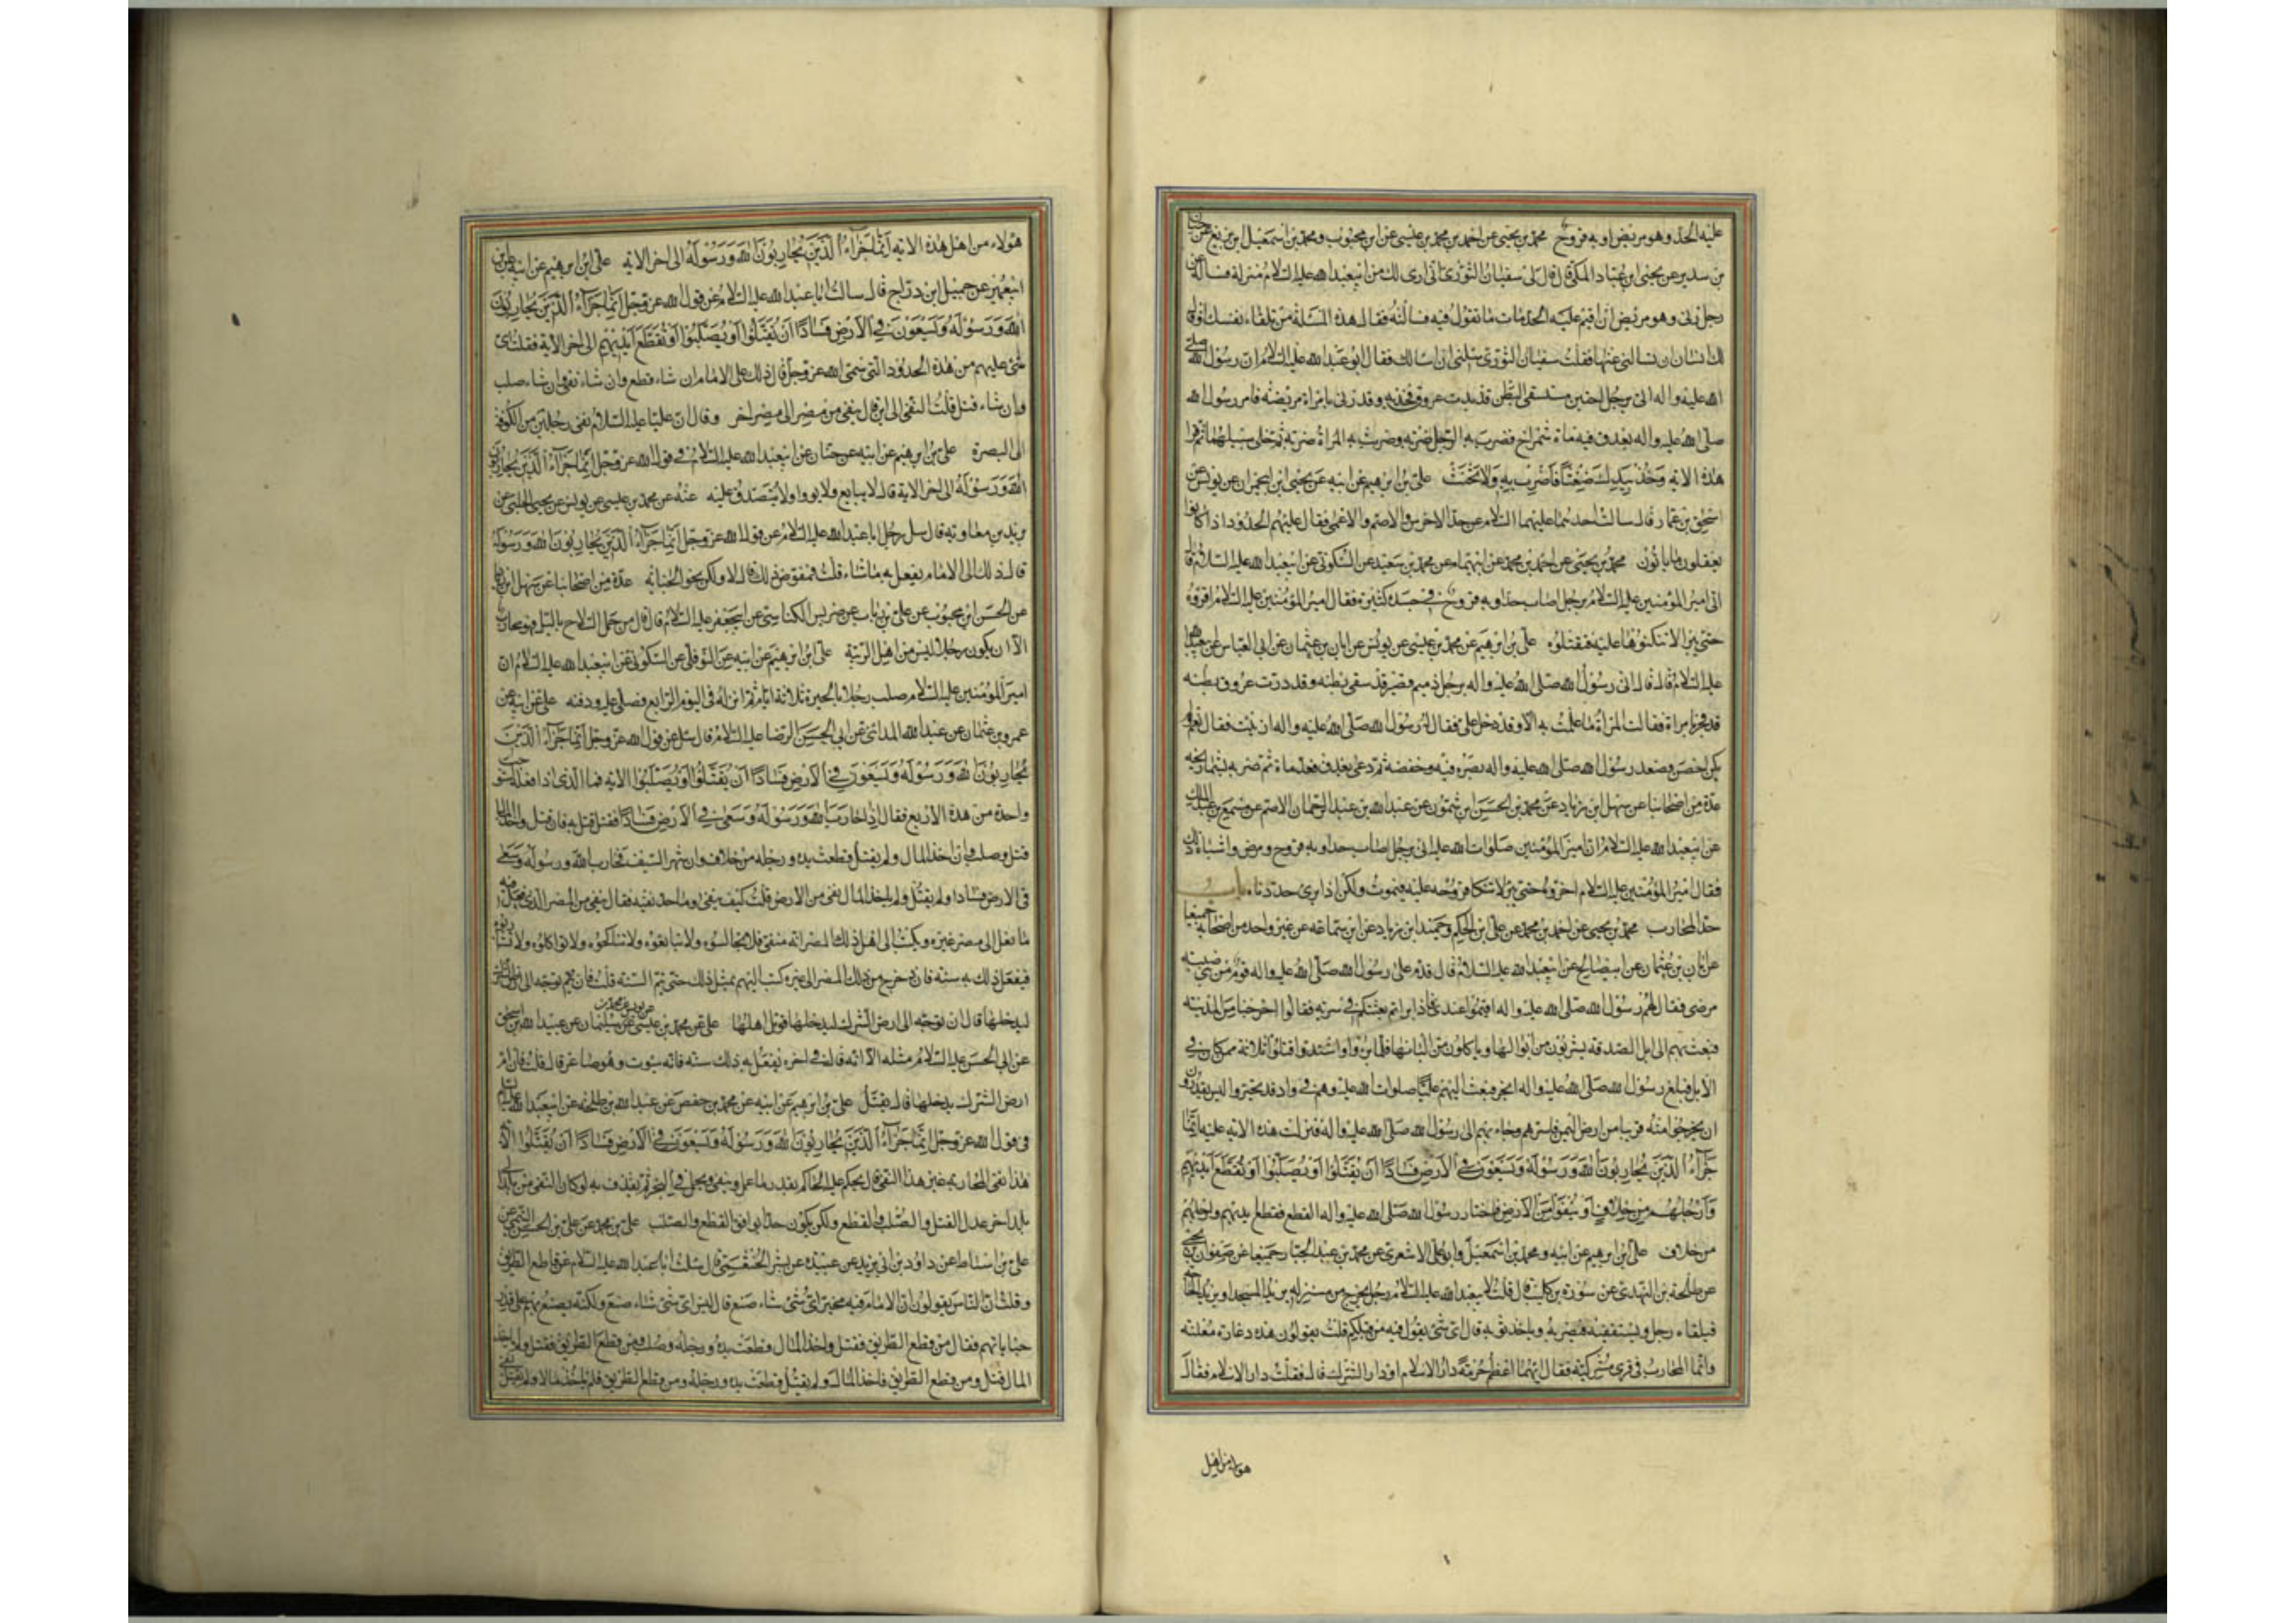 عليه الحد وهو مريض او به قروح محمد بن يحيى عن احمد بن محمد بن عيسى عن ابن محبوب ومحمد بن اسمعيل ابن بزيع عن حنان
بن سدير عن يحيى ابن عباد المكي قال قال لي سفيان الثوري اني ارى لك من ابيعبد الله عليه السلام منزلة فساله عن
رجل زنى وهو مريض ان اقيم عليه الحد مات ما تقول فيه فسالته فقال هذه المسئلة من تلقاء نفسك او قال
لك انسان ان تسالني عنها فقلت سفيان الثوري سئلني ان اسالك فقال ابو عبد الله عليه السلام ان رسول الله صلى
الله عليه واله اتى برجل احبن مستسقى البطن قد بدت عروق فخذيه وقد زنى بامراة مريضة فامر رسول الله
صلى الله عليه واله بعذق فيه ماة شمراخ فضرب به الرجل ضربه وضربت به المراة ضربه ثم خلى سبيلهما ثم قرا
هذه الايه وَخُذْ بِيَدِكَ ضِغْثًا فَاضْرِب بِهِ وَلَا تَحْنَثْ علي بن ابرهيم عن ابيه عن يحيى ابن ابي عمران عن يونس عن
اسحق بن عمار قال سالت احدهما عليهما السلام عن حد الاخرس والاصم والاعمى فقال عليهم الحدود اذا كانوا
يعقلون ما ياتون محمد بن يحيى عن احمد بن محمد عن ابنهمام عن محمد بن سعيد عن السكوني عن ابيعبد الله عليه السلام قال
اتى امير المؤمنين عليه السلام برجل اصاب حدا وبه قروح في جسده كثيرة فقال امير المؤمنين عليه السلام اقروه
حتى تبرا لا تنكئوها عليه فتقتلوه علي بن ابرهيم عن محمد بن عيسى عن يونس عن ابان بن عثمان عن ابي العباس عن ابيعبد الله
عليه السلام قال قال اتى رسول الله صلى الله عليه واله برجل دميم قصير قد سقى بطنه وقد درت عروق بطنه
قد فجر بامراة فقالت المراة ما علمت به الا وقد دخل علي فقال له رسول الله صلى الله عليه واله ازنيت فقال نعم ولم
يكن احصن فصعد رسول الله صلى الله عليه واله بصره فيه وخفضه ثم دعى بعذق فعده ماة ثم ضربه بشماريخه
عدة من اصحابنا عن سهل ابن زياد عن محمد بن الحسن ابن شمون عن عبد الله بن عبد الرحمان الاصم عن مسمع بن عبد الملك
عن ابيعبد الله عليه السلام ان امير المؤمنين صلوات الله عليه اتى برجل اصاب حدا وبه قروح ومرض واشباه ذلك
فقال امير المؤمنين عليه السلام اخروه حتى تبرا لا تنكا قروحه عليه فيموت ولكن اذا برئ حددناه باب
حد المحارب محمد بن يحيى عن احمد بن محمد عن علي ابن الحكم وحميد ابن زياد عن ابن سماعه عن غير واحد من اصحابه جميعا
عن ابان بن عثمان عن ابيصالح عن ابيعبد الله عليه السلام قال قدم على رسول الله صلى الله عليه واله قوم من بني ضبه
مرضى فقال لهم رسول الله صلى الله عليه واله اقيموا عندي فاذا براتم بعثتكم في سريه فقالوا اخرجنا من المدينه
فبعث بهم الى ابل الصدقه يشربون من ابوالها وياكلون من البانها فلما براوا واشتدوا قتلوا ثلاثة ممن كان في
الابل فبلغ رسول الله صلى الله عليه واله الخبر فبعث اليهم عليا صلوات الله عليه وهم في واد قد تحيروا ليس يقدرون
ان يخرجوا منه قريبا من ارض اليمن فاسرهم وجاء بهم الى رسول الله صلى الله عليه واله فنزلت هذه الايه عليه انما
جَزَاءُ الَّذِينَ يُحَارِبُونَ اللهَ وَرَسُولَهُ وَيَسْعَوْنَ فِي الْأَرْضِ فَسَادًا أَنْ يُقَتَّلُوا أَوْ يُصَلَّبُوا أَوْ تُقَطَّعَ أَيْدِيهِمْ
وَأَرْجُلُهُمْ مِنْ خِلَافٍ أَوْ يُنْفَوْا مِنَ الْأَرْضِ فاختار رسول الله صلى الله عليه واله القطع فقطع ايديهم وارجلهم
من خلاف علي ابن ابرهيم عن ابيه ومحمد بن اسمعيل وابو علي الاشعري عن محمد بن عبد الجبار جميعا عن صفوان بن يحيى
عن طلحة بن النهدي عن سورة بن كليب قال قلت لابيعبد الله عليه السلام رجل يخرج من منزله يريد المسجد او يريد الحاجة
فيلقاه رجل ويستقفيه فيضربه وياخذ ثوبه قال اي شئ يقول فيه من قبلكم قلت يقولون هذه دغارة معلنه
وانما المحارب في قرى مشركية فقال ايهما اعظم حرمة دار الاسلام او دار الشرك قال فقلت دار الاسلام فقال
هولاء من اهل
هولاء من اهل هذه الايه اِنَّمَا جَزَاءُ الَّذِينَ يُحَارِبُونَ اللهَ وَرَسُولَهُ الى اخر الايه علي ابن ابرهيم عن ابيه عن ابن
ابيعمير عن جميل ابن دراج قال سالت ابا عبد الله عليه السلام عن قول الله عز وجل اِنَّمَا جَزَاءُ الَّذِينَ يُحَارِبُونَ
اللهَ وَرَسُولَهُ وَيَسْعَوْنَ فِي الْأَرْضِ فَسَادًا أَنْ يُقَتَّلُوا أَوْ يُصَلَّبُوا أَوْ تُقَطَّعَ أَيْدِيهِمْ الى اخر الاية فقلت اي
شئ عليهم من هذه الحدود التي سمى الله عز وجل قال ذلك على الامام ان شاء قطع وان شاء نفى وان شاء صلب
وان شاء قتل قلت النفي الى اين قال ينفى من مصر الى مصر اخر وقال ان عليا عليه السلام نفى رجلين من الكوفة
الى البصرة علي بن ابرهيم عن ابيه عن حنان عن ابيعبد الله عليه السلام في قول الله عز وجل اِنَّمَا جَزَاءُ الَّذِينَ يُحَارِبُونَ
اللهَ وَرَسُولَهُ الى اخر الاية قال لا يبايع ولا يووا ولا يتصدق عليه عنه عن محمد بن عيسى عن يونس عن يحيى الحلبي عن
بريد بن معاويه قال سئل رجل ابا عبد الله عليه السلام عن قول الله عز وجل اِنَّمَا جَزَاءُ الَّذِينَ يُحَارِبُونَ اللهَ وَرَسُولَهُ
قال ذلك الى الامام يفعل به ما شاء قلت فمفوض ذلك قال لا ولكن نحو الجنايه عدة من اصحابنا عن سهل ابن زياد
عن الحسن ابن محبوب عن علي بن رئاب عن ضريس الكناسي عن ابيجعفر عليه السلام قال قال من حمل السلاح بالليل فهو محارب
الا ان يكون رجلا ليس من اهل الريبة علي ابن ابرهيم عن ابيه عن النوفلي عن السكوني عن ابيعبد الله عليه السلام ان
امير المؤمنين عليه السلام صلب رجلا بالحيرة ثلاثة ايام ثم انزله في اليوم الرابع فصلى عليه ودفنه علي عن ابيه عن
عمرو بن عثمان عن عبيد الله المدائني عن ابي الحسن الرضا عليه السلام قال سئل عن قول الله عز وجل اِنَّمَا جَزَاءُ الَّذِينَ
يُحَارِبُونَ اللهَ وَرَسُولَهُ وَيَسْعَوْنَ فِي الْأَرْضِ فَسَادًا أَنْ يُقَتَّلُوا أَوْ يُصَلَّبُوا الايه فما الذي اذا فعله استوجب
واحدة من هذه الاربع فقال اذا حارب الله ورسوله وسعى في الارض فسادا فقتل قتل به فان قتل واخذ المال
قتل وصلب وان اخذ المال ولم يقتل قطعت يده ورجله من خلاف وان شهر السيف فحارب الله ورسوله وسعى
في الارض فسادا ولم يقتل ولم ياخذ المال نفى من الارض قلت كيف ينفى وما حد نفيه فقال ينفى من المصر الذي فعل فيه
ما فعل الى مصر غيره ويكتب الى اهل ذلك المصر انه منفى فلا تجالسوه ولا تبايعوه ولا تناكحوه ولا تواكلوه ولا تشاربوه
فيفعل ذلك به سنة فان خرج من ذلك المصر الى غيره كتب اليهم بمثل ذلك حتى تتم السنة قلت فان توجه الى ارض الشرك
ليدخلها قال ان توجه الى ارض الشرك ليدخلها قوتل اهلها علي عن محمد بن عيسى عن يونس عن محمد بن سليمان عن عبيد الله بن اسحق
عن ابي الحسن عليه السلام مثله الا انه قال في اخره يفعل به ذلك سنه فانه سيتوب وهو صاغر قال قلت فان ام
ارض الشرك يدخلها قال يقتل علي بن ابرهيم عن ابيه عن محمد بن حفص عن عبد الله بن طلحه عن ابيعبد الله عليه السلام
في قول الله عز وجل اِنَّمَا جَزَاءُ الَّذِينَ يُحَارِبُونَ اللهَ وَرَسُولَهُ وَيَسْعَوْنَ فِي الْأَرْضِ فَسَادًا أَنْ يُقَتَّلُوا الايه
هذا نفي المحاربه غير هذا النفي قال يحكم عليه الحاكم بقدر ما عمل وينفى ويحمل في البحر ثم يقذف به لو كان النفي من بلد الى
بلد اخر عدل القتل والصلب والقطع ولكن يكون حدا يوافق القطع والصلب علي بن محمد عن علي بن الحسن التيمي عن
علي بن اسباط عن داود بن ابي يزيد عن عبيدة عن بشر الخثعمي قال سئلت ابا عبد الله عليه السلام عن قاطع الطريق
وقلت ان الناس يقولون ان الامام فيه مخير اي شئ شاء صنع قال ليس اي شئ شاء صنع ولكنه يصنع بهم على قدر
جناياتهم فقال من قطع الطريق فقتل واخذ المال قطعت يده ورجله وصلب ومن قطع الطريق فقتل ولم ياخذ
المال قتل ومن قطع الطريق فاخذ المال ولم يقتل قطعت يده ورجله ومن قطع الطريق فلم ياخذ مالا ولم يقتل نفى